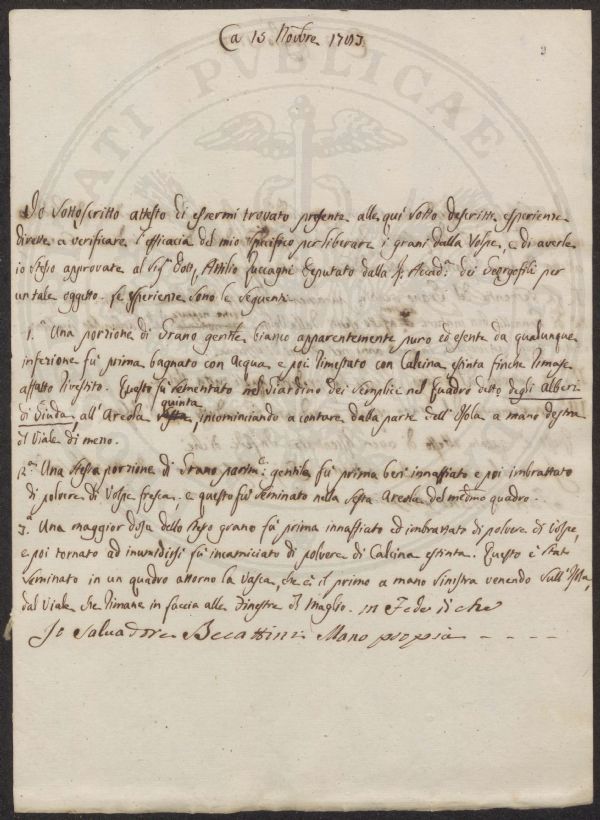 a 15 Novbre 1783
3
PUBLICAE
Io sottoscritto attesto di essermi trovato presente alle qui sotto descritte esperienze
dirette a verificare l'efficacia del mio specifico per liberare i grani dalla Volpe, e di averle
io stesso approvate al Sigr Dott. Attilio Zuccagni Deputato dalla R. Accad. dei Georgofili per
un tale oggetto. Le esperienze sono le seguenti.
1.a Una porzione di Grano gentile bianco apparentemente puro ed esente da qualunque
infezione fù prima bagnato con Acqua, e poi rimestato con Calcina estinta finche rimase
affatto rivestito. Questo fù sementato nel Giardino dei Semplici nel Quadro detto degli Alberi
di Giuda, all' Areola quinta, incominciando a contare dalla parte dell' Isola a mano destra
il Viale di mezzo.
2.a Una stessa porzione di Grano parimte gentile fù prima ben innaffiato e poi imbrattato
di polvere di Volpe fresca, e questo fù seminato nella sesta Areola del medmo quadro.
3.a Una maggior dose dello stesso grano fù prima innaffiato ed imbrattato di polvere di Volpe,
e poi tornato ad inumidirsi, fù incamiciato di polvere di Calcina estinta. Questo è stato
seminato in un quadro attorno la Vasca, che è il primo a mano sinistra venendo dall' Isola,
dal Viale che rimane in faccia alle Finestre di Maglio. In Fede di che
Io Salvadore Becattini Mano propia